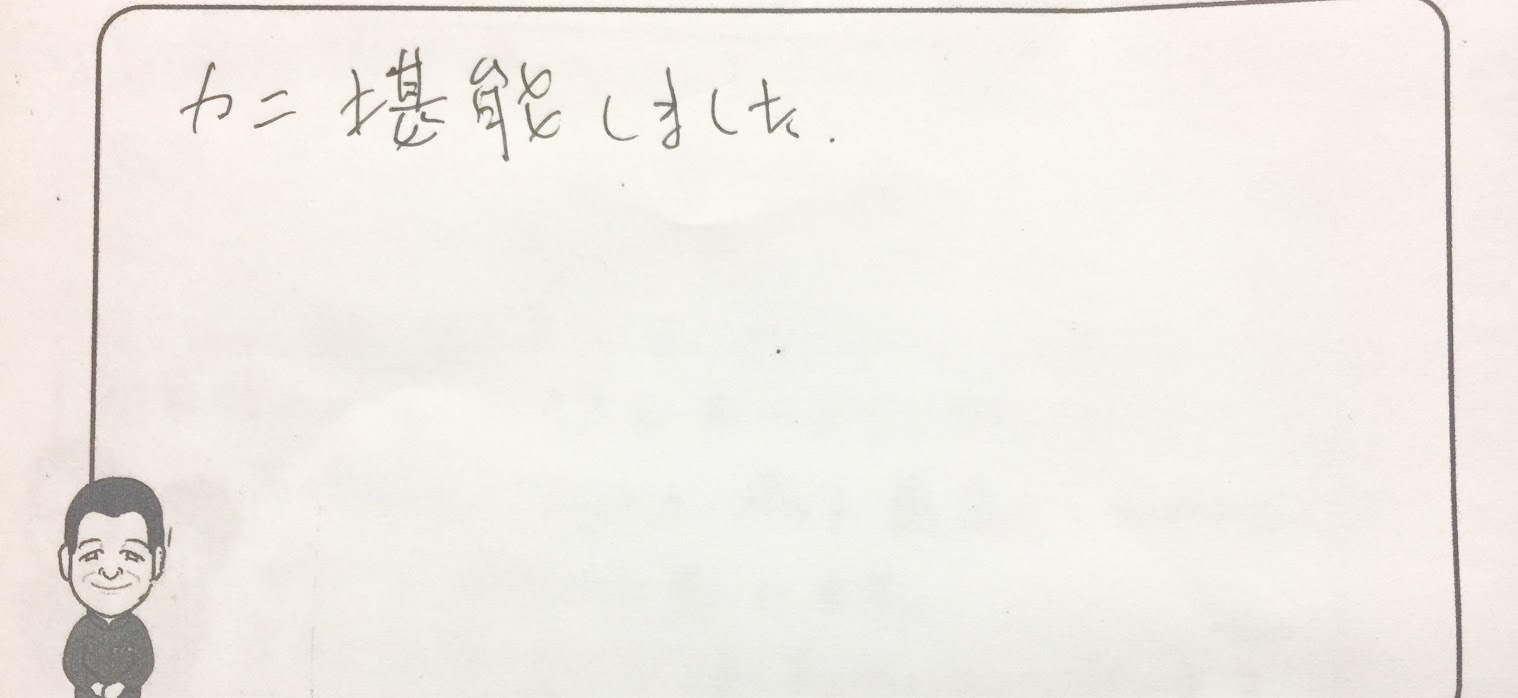 カニ堪能しました.